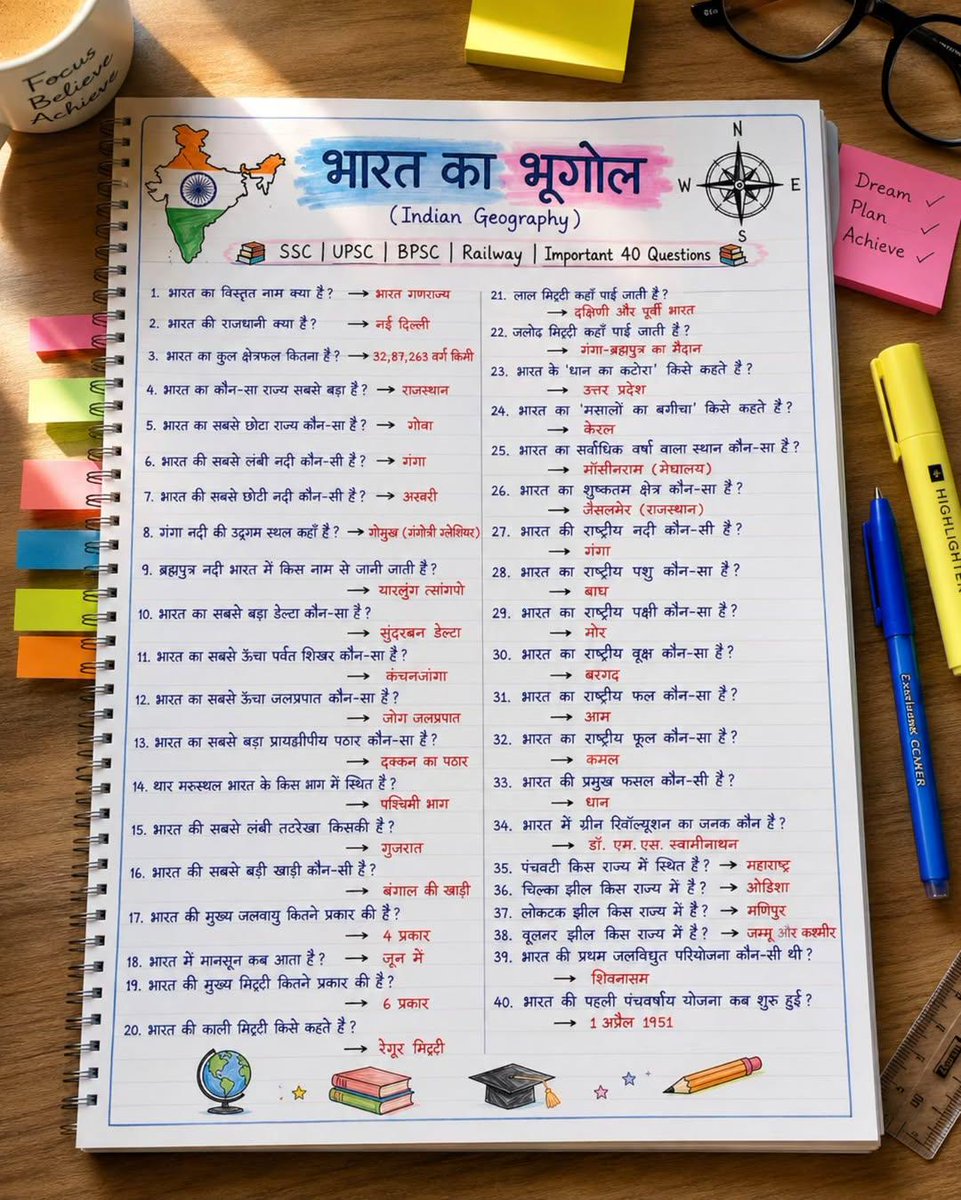 Focus
Believe
Achieve
भारत का भूगोल
(Indian Geography)
N
W
E
S
SSC | UPSC | BPSC | Railway | Important 40 Questions
Dream ✓
Plan ✓
Achieve ✓
1. भारत का विस्तृत नाम क्या है? → भारत गणराज्य
2. भारत की राजधानी क्या है? → नई दिल्ली
3. भारत का कुल क्षेत्रफल कितना है? → 32,87,263 वर्ग किमी
4. भारत का कौन-सा राज्य सबसे बड़ा है? → राजस्थान
5. भारत का सबसे छोटा राज्य कौन-सा है? → गोवा
6. भारत की सबसे लंबी नदी कौन-सी है? → गंगा
7. भारत की सबसे छोटी नदी कौन-सी है? → अरवरी
8. गंगा नदी की उद्गम स्थल कहाँ है? → गोमुख (गंगोत्री ग्लेशियर)
9. ब्रह्मपुत्र नदी भारत में किस नाम से जानी जाती है?
→ यारलुंग त्सांगपो
10. भारत का सबसे बड़ा डेल्टा कौन-सा है?
→ सुंदरबन डेल्टा
11. भारत का सबसे ऊँचा पर्वत शिखर कौन-सा है?
→ कंचनजंगा
12. भारत का सबसे ऊँचा जलप्रपात कौन-सा है?
→ जोग जलप्रपात
13. भारत का सबसे बड़ा प्रायद्वीपीय पठार कौन-सा है?
→ दक्कन का पठार
14. थार मरुस्थल भारत के किस भाग में स्थित है?
→ पश्चिमी भाग
15. भारत की सबसे लंबी तटरेखा किसकी है?
→ गुजरात
16. भारत की सबसे बड़ी खाड़ी कौन-सी है?
→ बंगाल की खाड़ी
17. भारत की मुख्य जलवायु कितने प्रकार की है?
→ 4 प्रकार
18. भारत में मानसून कब आता है? → जून में
19. भारत की मुख्य मिट्टी कितने प्रकार की है?
→ 6 प्रकार
20. भारत की काली मिट्टी किसे कहते है?
→ रेगूर मिट्टी
21. लाल मिट्टी कहाँ पाई जाती है?
→ दक्षिणी और पूर्वी भारत
22. जलोढ मिट्टी कहाँ पाई जाती है?
→ गंगा-ब्रह्मपुत्र का मैदान
23. भारत के 'धान का कटोरा' किसे कहते है?
→ उत्तर प्रदेश
24. भारत का 'मसालों का बगीचा' किसे कहते है?
→ केरल
25. भारत का सर्वाधिक वर्षा वाला स्थान कौन-सा है?
→ मॉसीनराम (मेघालय)
26. भारत का शुष्कतम क्षेत्र कौन-सा है?
→ जैसलमेर (राजस्थान)
27. भारत की राष्ट्रीय नदी कौन-सी है?
→ गंगा
28. भारत का राष्ट्रीय पशु कौन-सा है?
→ बाघ
29. भारत का राष्ट्रीय पक्षी कौन-सा है?
→ मोर
30. भारत का राष्ट्रीय वृक्ष कौन-सा है?
→ बरगद
31. भारत का राष्ट्रीय फल कौन-सा है?
→ आम
32. भारत का राष्ट्रीय फूल कौन-सा है?
→ कमल
33. भारत की प्रमुख फसल कौन-सी है?
→ धान
34. भारत में ग्रीन रिवॉल्यूशन का जनक कौन है?
→ डॉ. एम. एस. स्वामीनाथन
35. पंचवटी किस राज्य में स्थित है? → महाराष्ट्र
36. चिल्का झील किस राज्य में है? → ओडिशा
37. लोकटक झील किस राज्य में है? → मणिपुर
38. वूलनर झील किस राज्य में है? → जम्मू और कश्मीर
39. भारत की प्रथम जलविद्युत परियोजना कौन-सी थी?
→ शिवनासम
40. भारत की पहली पंचवर्षीय योजना कब शुरु हुई?
→ 1 अप्रैल 1951
HIGHLIGHTER